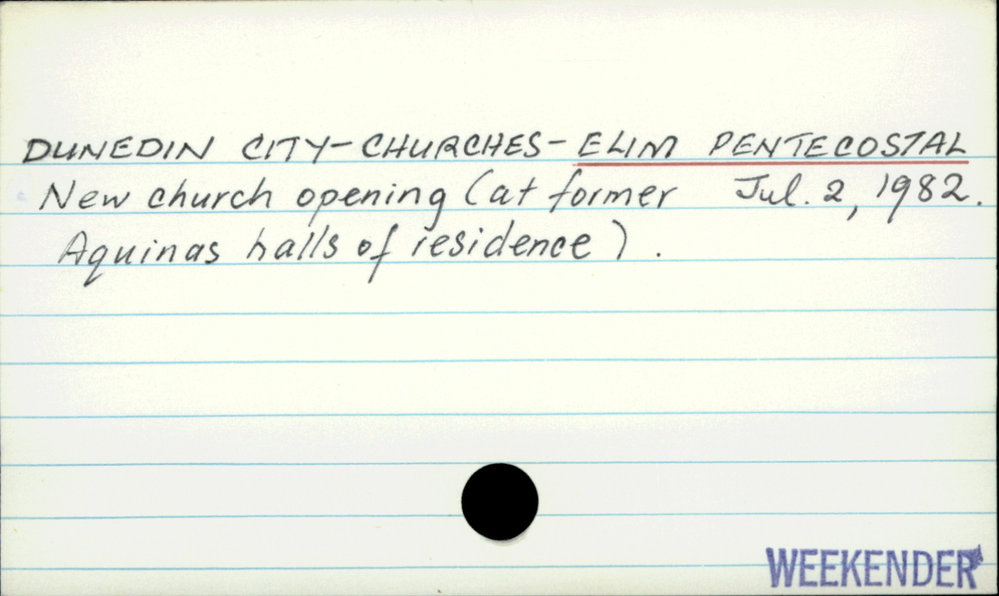 DUNEDIN CITY-CHURCHES-ELIM PENTECOSTAL
New church opening (at former Jul. 2, 1982.
Aquinas halls of residence).
WEEKENDER